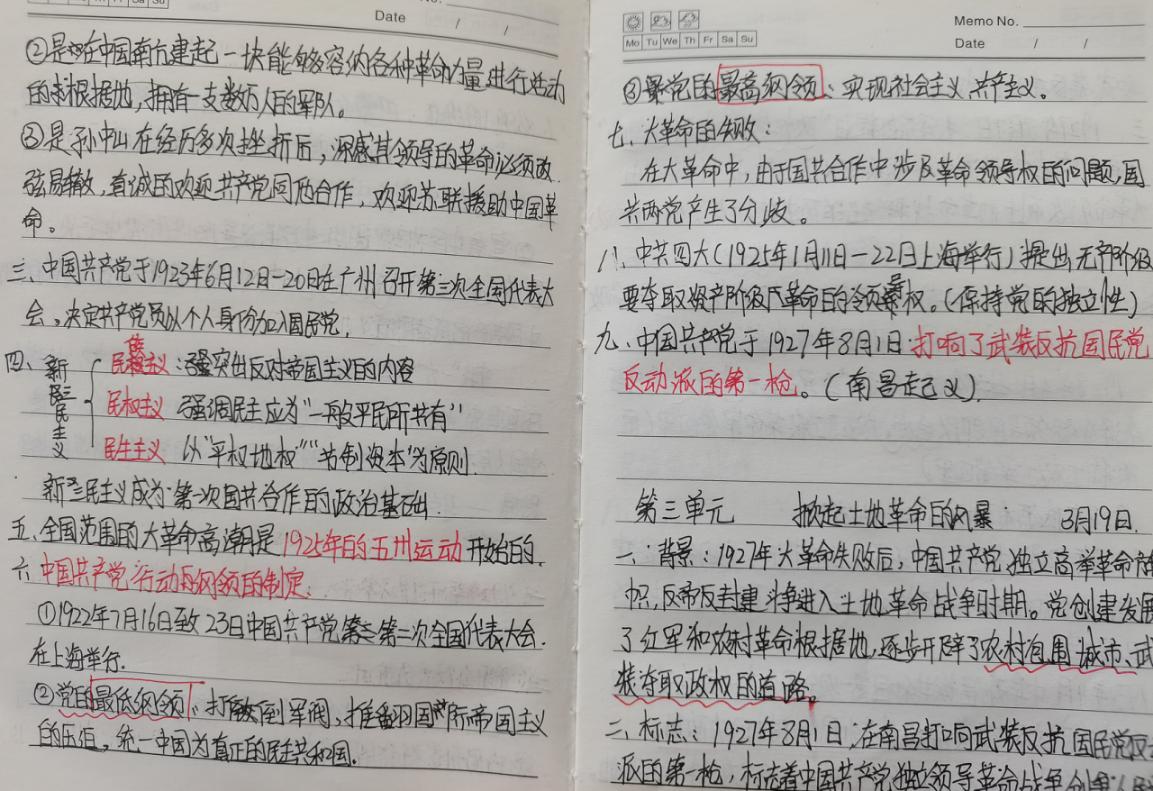 Date / /
②是在中国南方建起一块能够容纳各种革命力量进行活动
的根据地,拥有一支数万人的军队。
③是孙中山在经历多次挫折后,深感其领导的革命必须改
弦易辙,真诚的欢迎共产党同他合作,欢迎苏联援助中国革
命。
三、中国共产党于1923年6月12日-20日在广州召开第三次全国代表大
会。决定共产党员以个人身份加入国民党。
四、新三民主义
民族主义:强突出反对帝国主义的内容
民权主义 强调民主应为"一般平民所共有"
民生主义 以"平权地权""节制资本"为原则.
新三民主义成为第一次国共合作的政治基础.
五、全国范围的大革命高潮是1925年的五卅运动开始的.
六、中国共产党行动的纲领的制定:
①1922年7月16日致23日中国共产党第二次全国代表大会.
在上海举行.
②党的最低纲领:打倒军阀,推翻国际帝国主义
的压迫,统一中国为真正的民主共和国.
Memo No.
Mo Tu We Th Fr Sa Su
Date / /
③党的最高纲领:实现社会主义、共产主义。
七、大革命的失败:
在大革命中,由于国共合作中涉及革命领导权的问题,国
共两党产生了分歧。
八、中共四大(1925年1月11日-22日上海举行)提出无产阶级
要夺取资产阶级民革命的领导权。(保持党的独立性)
九、中国共产党于1927年8月1日打响了武装反抗国民党
反动派的第一枪。(南昌起义).
第三单元 掀起土地革命的风暴 3月19日.
一、背景:1927年大革命失败后,中国共产党独立高举革命旗
帜,反帝反封建斗争进入土地革命战争时期。党创建发展
了红军和农村革命根据地,逐步开辟了农村包围城市、武
装夺取政权的道路。
二、标志:1927年8月1日,在南昌打响武装反抗国民党反动
派的第一枪,标志着中国共产党独立领导革命战争